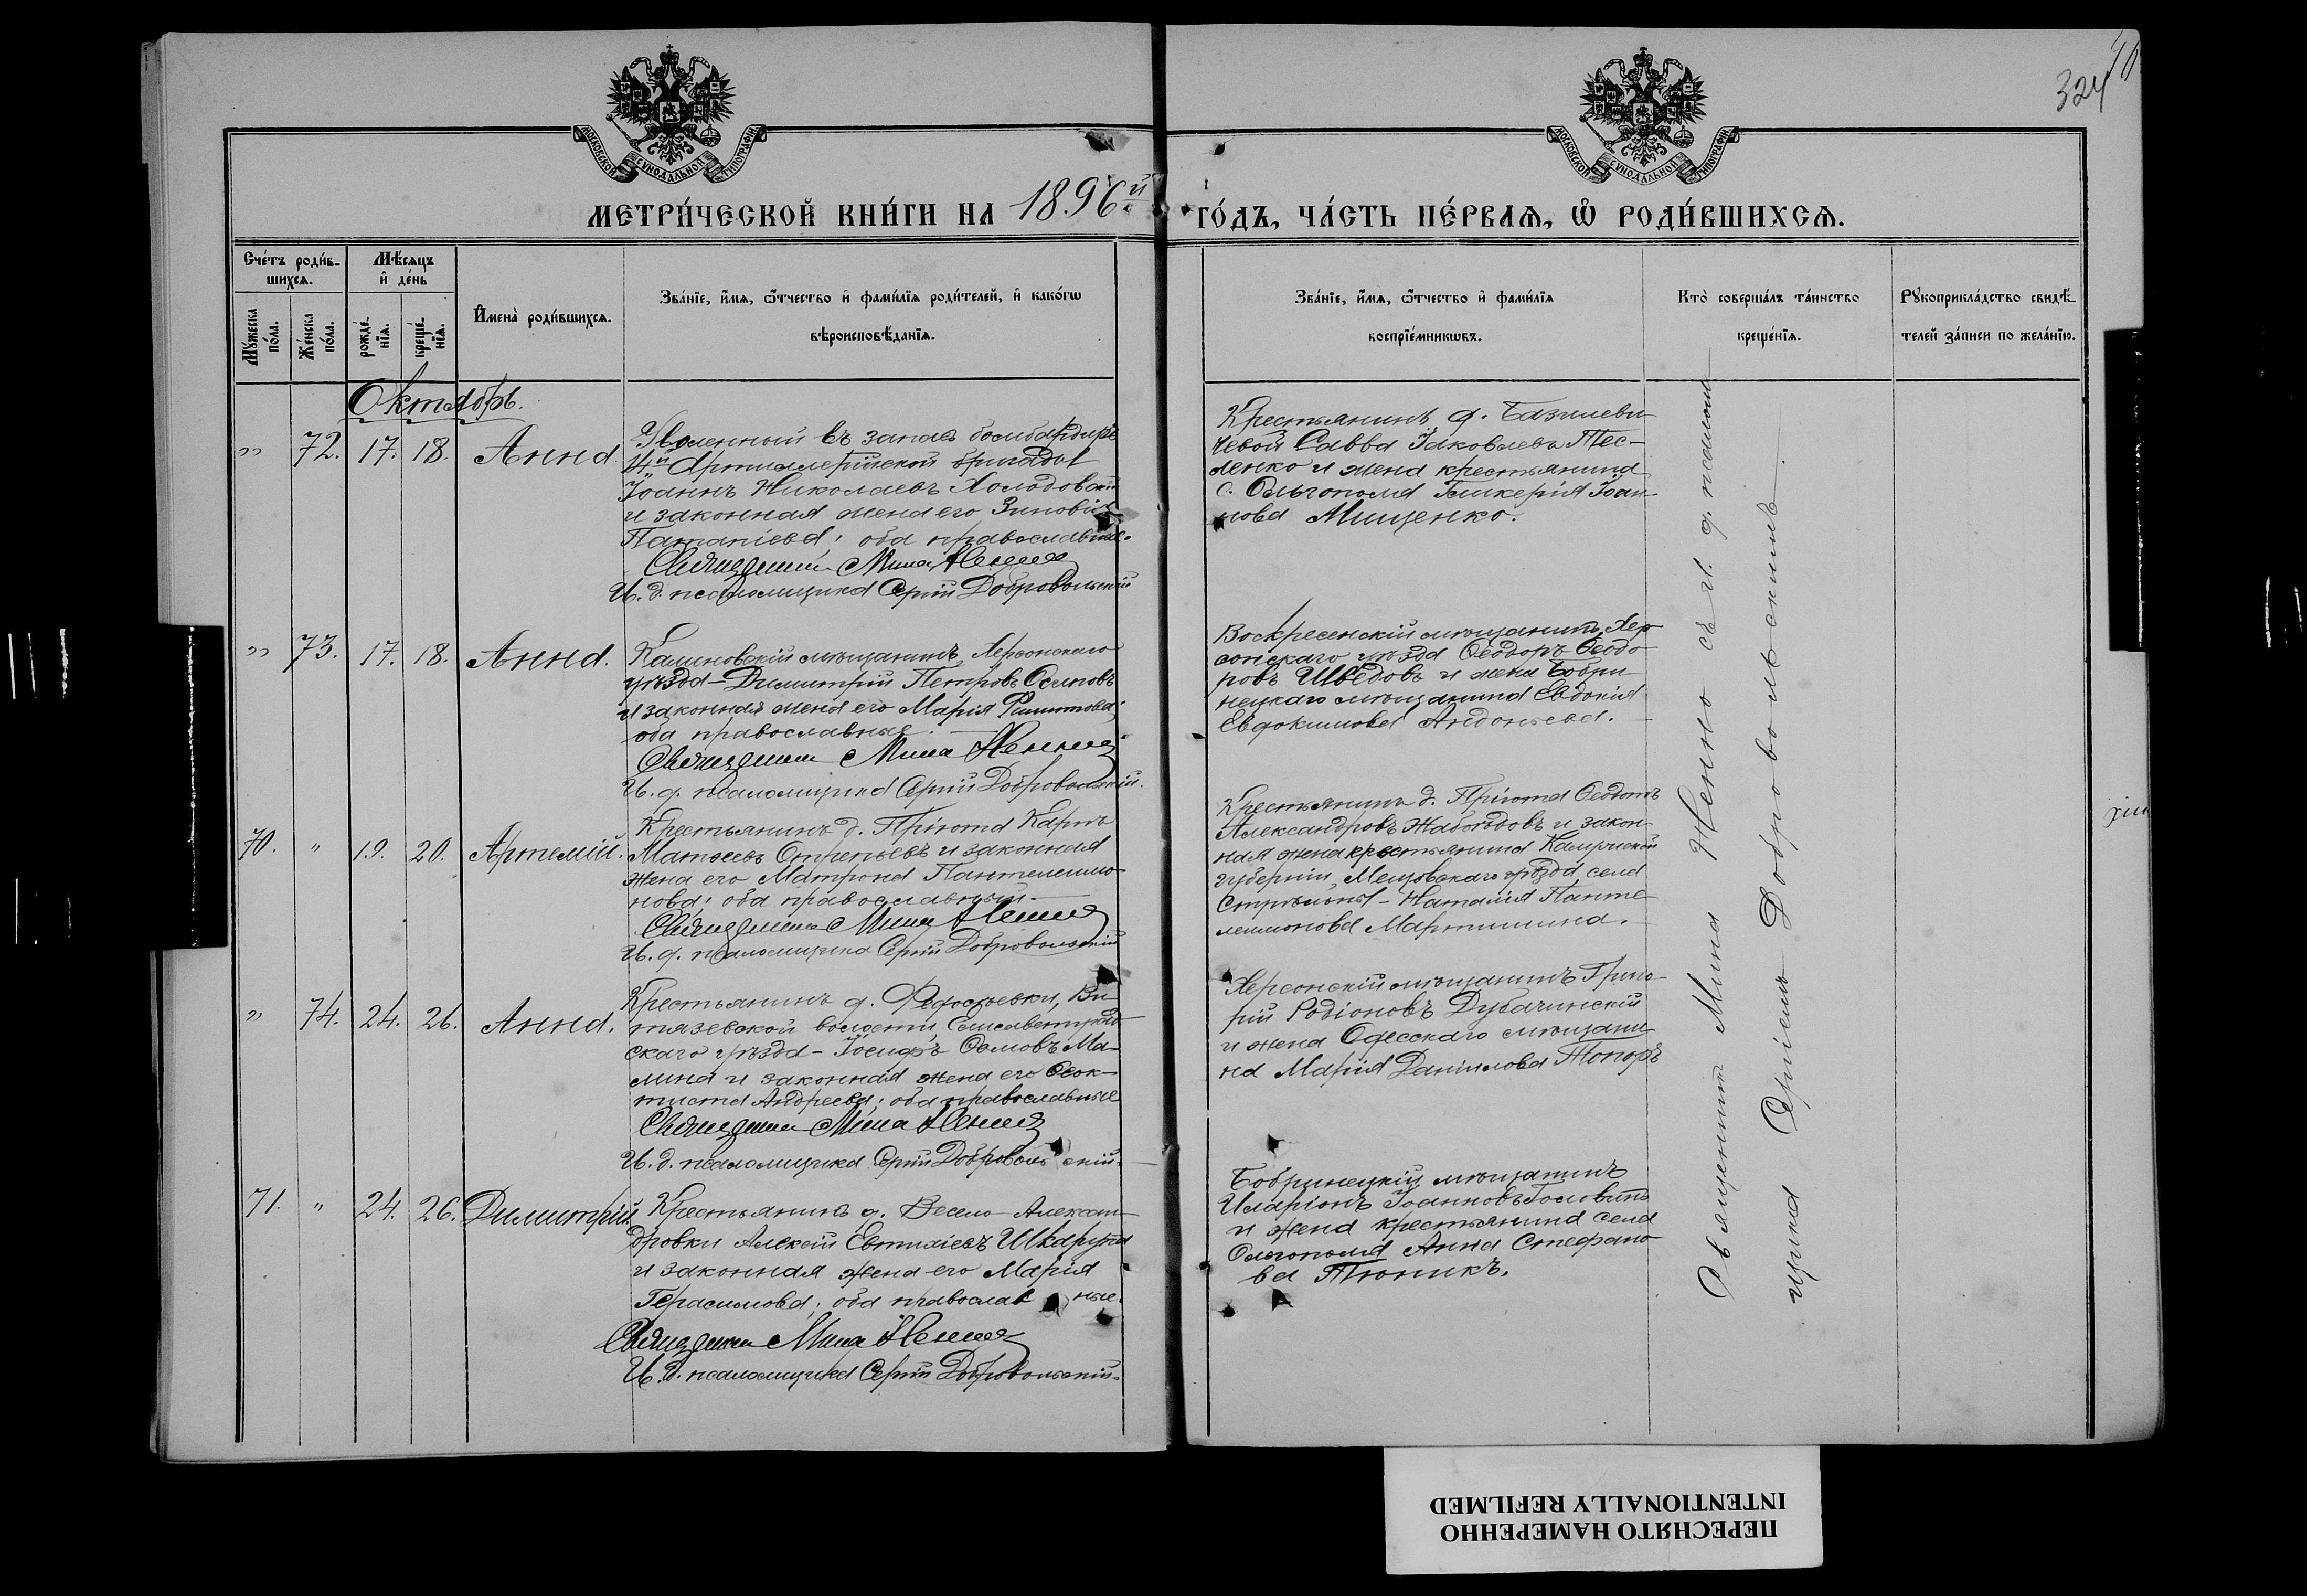 МОСКОВСКОЙ СѴНОДАЛЬНОЙ ТИПОГРАФІИ
МОСКОВСКОЙ СѴНОДАЛЬНОЙ ТИПОГРАФІИ
324
МЕТРИ́ЧЕСКОЙ КНИ́ГИ НА 1896й ГО́ДЪ, ЧА́СТЬ ПЕ́РВАѦ, Ѽ РОДИ́ВШИХСѦ.
Сче́тъ роди́в-
шихсѧ.
Мꙋ́жеска
по́ла.
Же́нска
по́ла.
Мѣ́сѧцъ
и҆ де́нь
рожде́-
нїѧ.
креще́-
нїѧ.
И҆мена̀ роди́вшихсѧ.
Зва́нїе, и҆́мѧ, ѻ҆́тчество и҆ фами́лїѧ роди́телей, и҆ како́гѡ
вѣроисповѣ́данїѧ.
Зва́нїе, и҆́мѧ, ѻ҆́тчество и҆ фами́лїѧ
воспрїе́мникѡвъ.
Кто̀ соверша́лъ та́инство
креще́нїѧ.
Рꙋкоприкла́дство свидѣ́-
телей за́писи по жела́нїю.
Октябрь.
„ 72. 17. 18. Анна.
Уволенный въ запасъ бомбардиръ
14й Артиллерійской бригады
Іоаннъ Николаевъ Холодовскій
и законная жена его Зиновія
Патапіева; оба православные.
Священникъ Мина Ненно
И. д. псаломщика Сергій Добровольскій
Крестьянинъ д. Базилеви-
чевой Савва Іаковлевъ Тес-
ленко и жена крестьянина
с. Ольгополя Гликерія Іоан-
нова Мищенко.
„ 73. 17. 18. Анна.
Калиновскій мѣщанинъ, Херсонскаго
уѣзда - Димитрій Петровъ Осиповъ
и законная жена его Марія Филиппова;
оба православные.
Священникъ Мина Ненно
И. д. псаломщика Сергій Добровольскій.
Воскресенскій мѣщанинъ, Хер-
сонскаго уѣзда Ѳеодоръ Ѳеодо-
ровъ Шведовъ и жена Бобри-
нецкаго мѣщанина Евдокія
Евдокимова Андоньева.
70. „ 19. 20. Артемій.
Крестьянинъ д. Пріюта Карпъ
Матѳеевъ Отрепьевъ и законная
жена его Матрона Пантелеимо-
нова; оба православные.
Священникъ Мина Ненно
И. д. псаломщика Сергій Добровольскій
Крестьянинъ д. Пріюта Ѳеодотъ
Александровъ Жабоѣдовъ и закон-
ная жена крестьянина Калужской
губерніи, Мещовскаго уѣзда села
- Наталія Панте-
леимонова Мартинина.
„ 74. 24. 26. Анна.
Крестьянинъ д. Федосѣевки, Ви-
тязевской волости, Елисаветград-
скаго уѣзда - Іосифъ Ма-
лина и законная жена его Ѳеок-
тиста Андреева; оба православные
Священникъ Мина Ненно
И. д. псаломщика Сергій Добровольскій.
Херсонскій мѣщанинъ Григо-
рій Родіоновъ Дубачинскій
и жена Одесскаго мѣщани-
на Марія Даніилова Топоръ
71. „ 24. 26. Димитрій.
Крестьянинъ д. Весело-Алексан-
дровки Алексій Евтихіевъ Шкарупа
и законная жена его Марія
Герасимова; оба православные.
Священникъ Мина Ненно
И. д. псаломщика Сергій Добровольскій.
Бобринецкій мѣщанинъ
Иларіонъ Іоанновъ Головань
и жена крестьянина села
Ольгополя Анна Стефано-
ва Тюпикъ.
Священникъ Мина Ненно съ и. д. псалом-
щика Сергіемъ Добровольскимъ.
ПЕРЕСНЯТО НАМЕРЕННО
INTENTIONALLY REFILMED